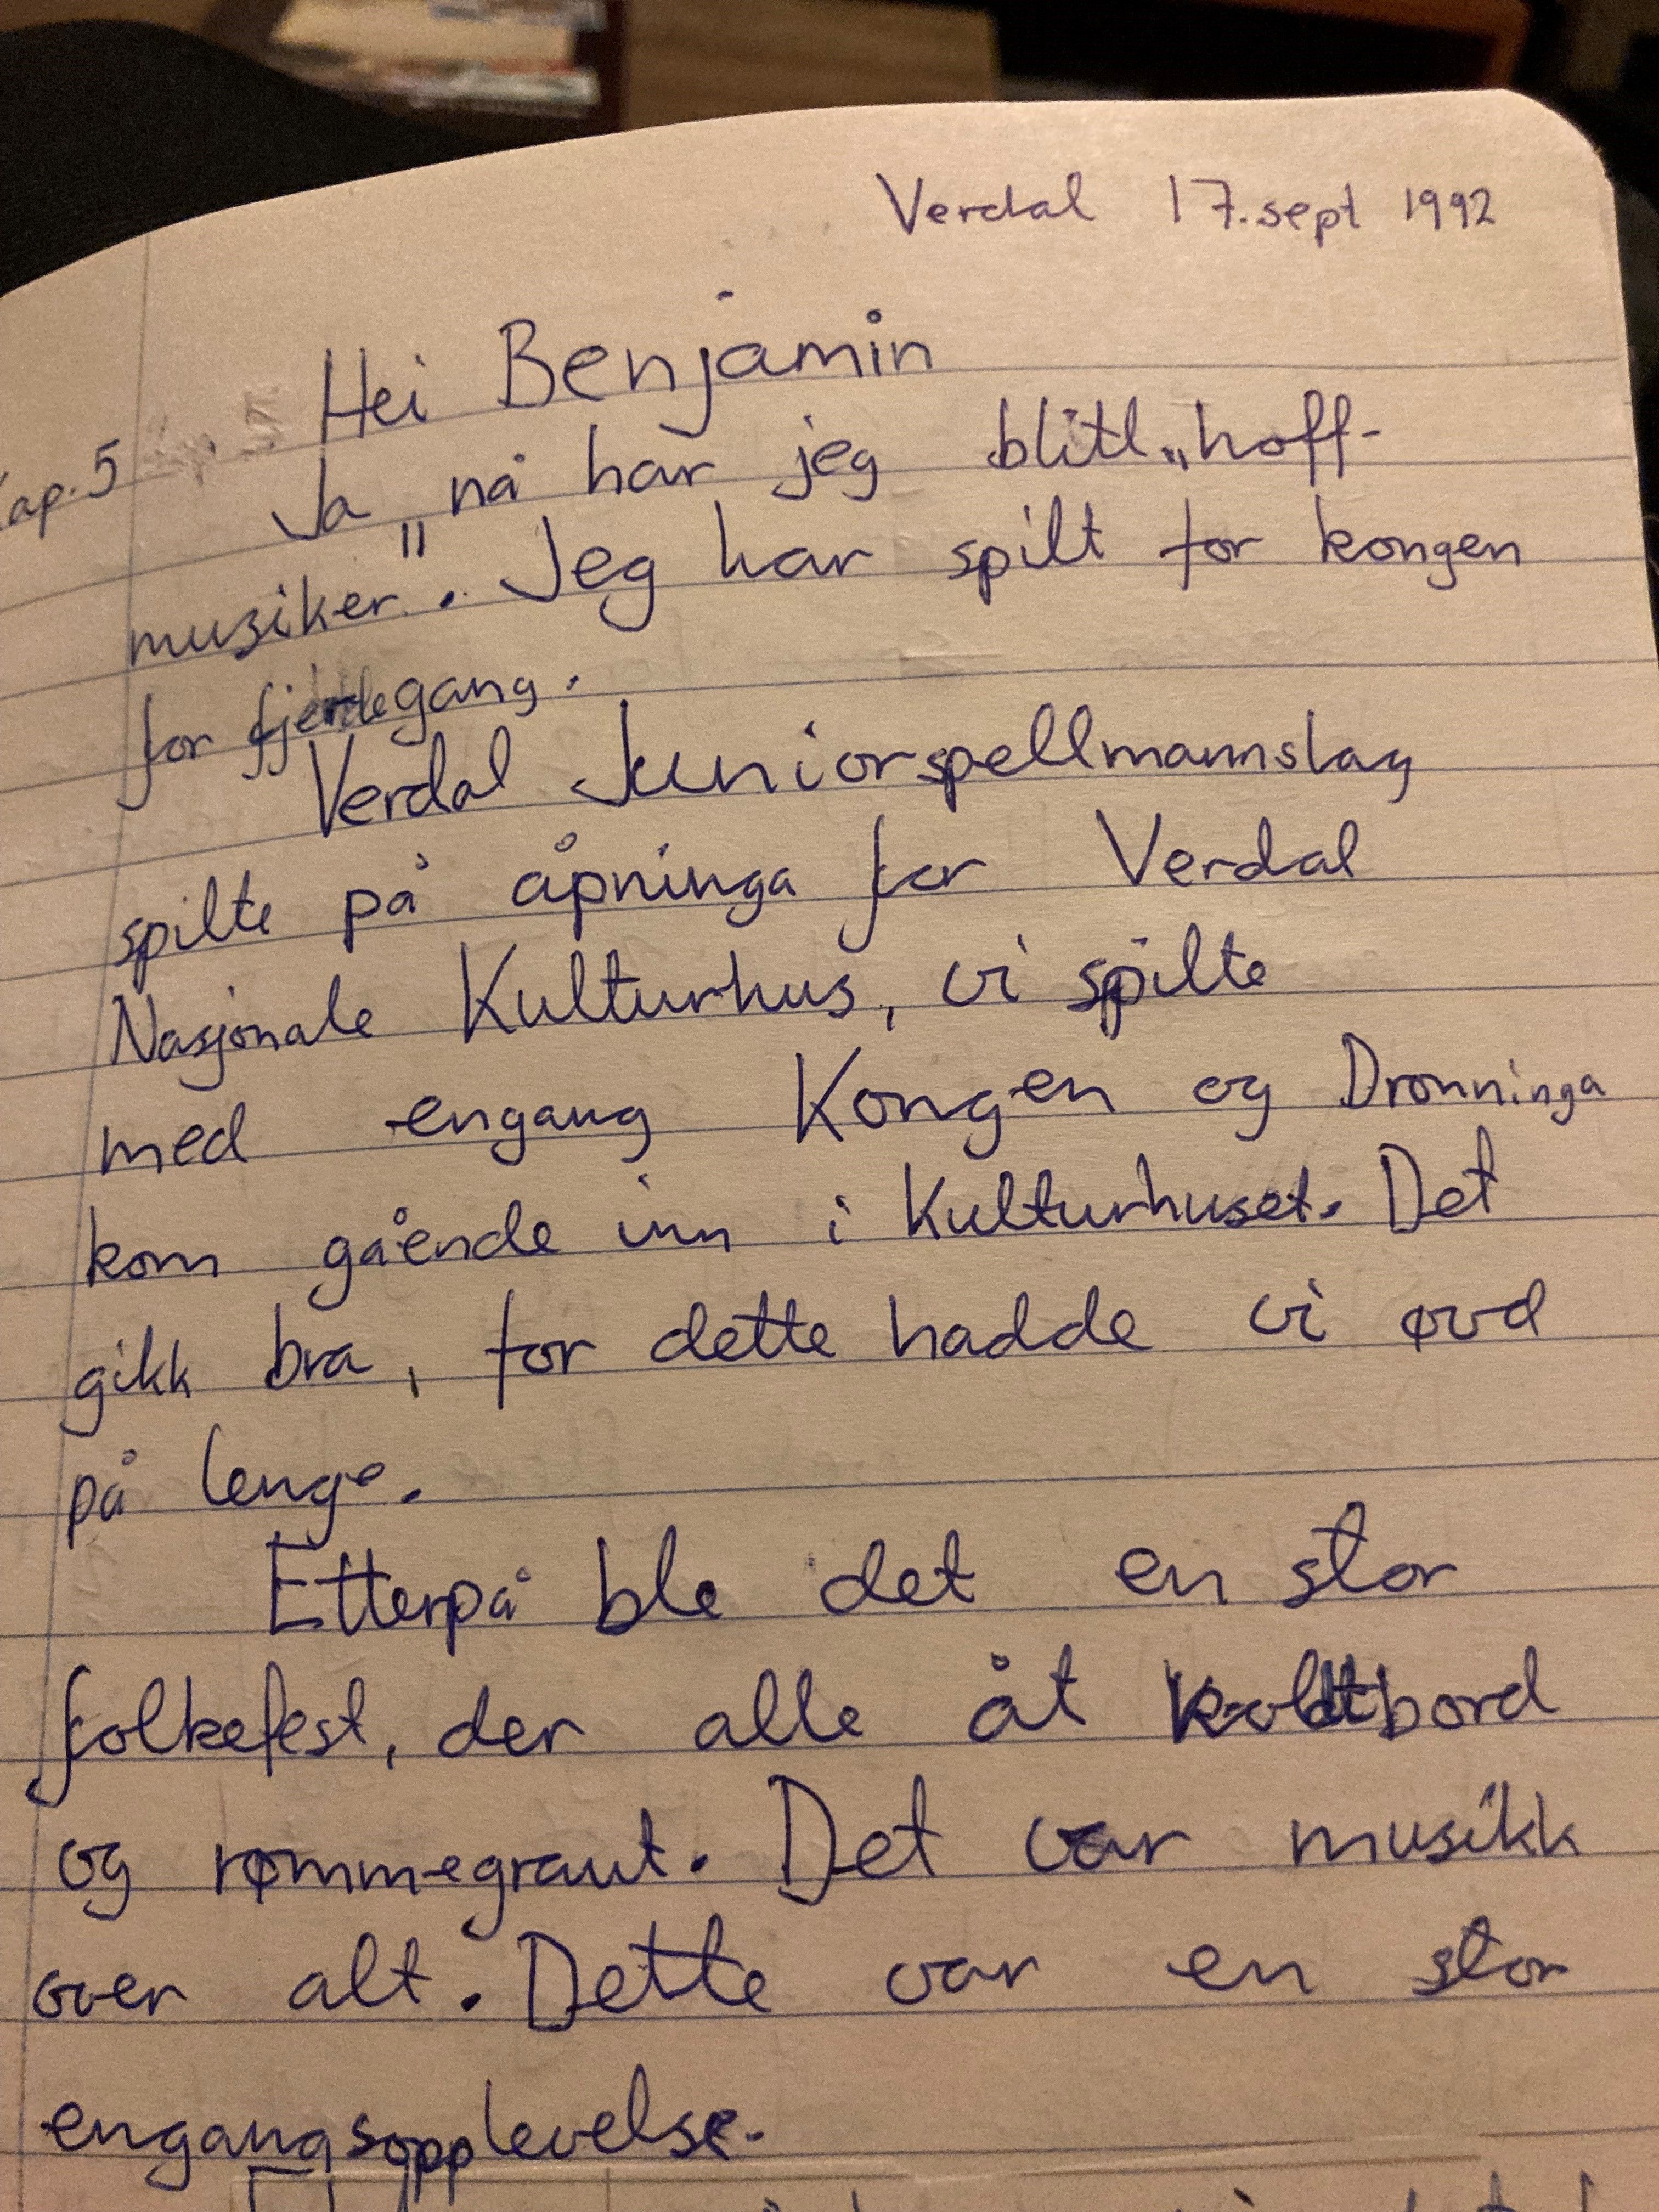 Verdal 17.sept 1992
Hei Benjamin
Kap.5
Ja nå har jeg blitt „hoff-
musiker". Jeg har spilt for kongen
for fjerdegang.
Verdal Juniorspellmannslag
spilte på åpninga for Verdal
Nasjonale Kulturhus, vi spilte
med engang Kongen og Dronninga
kom gående inn i Kulturhuset. Det
gikk bra, for dette hadde vi øvd
på lenge.
Etterpå ble det en stor
folkefest, der alle åt koldtbord
og rømmegraut. Det var musikk
over alt. Dette var en stor
engangsopplevelse.